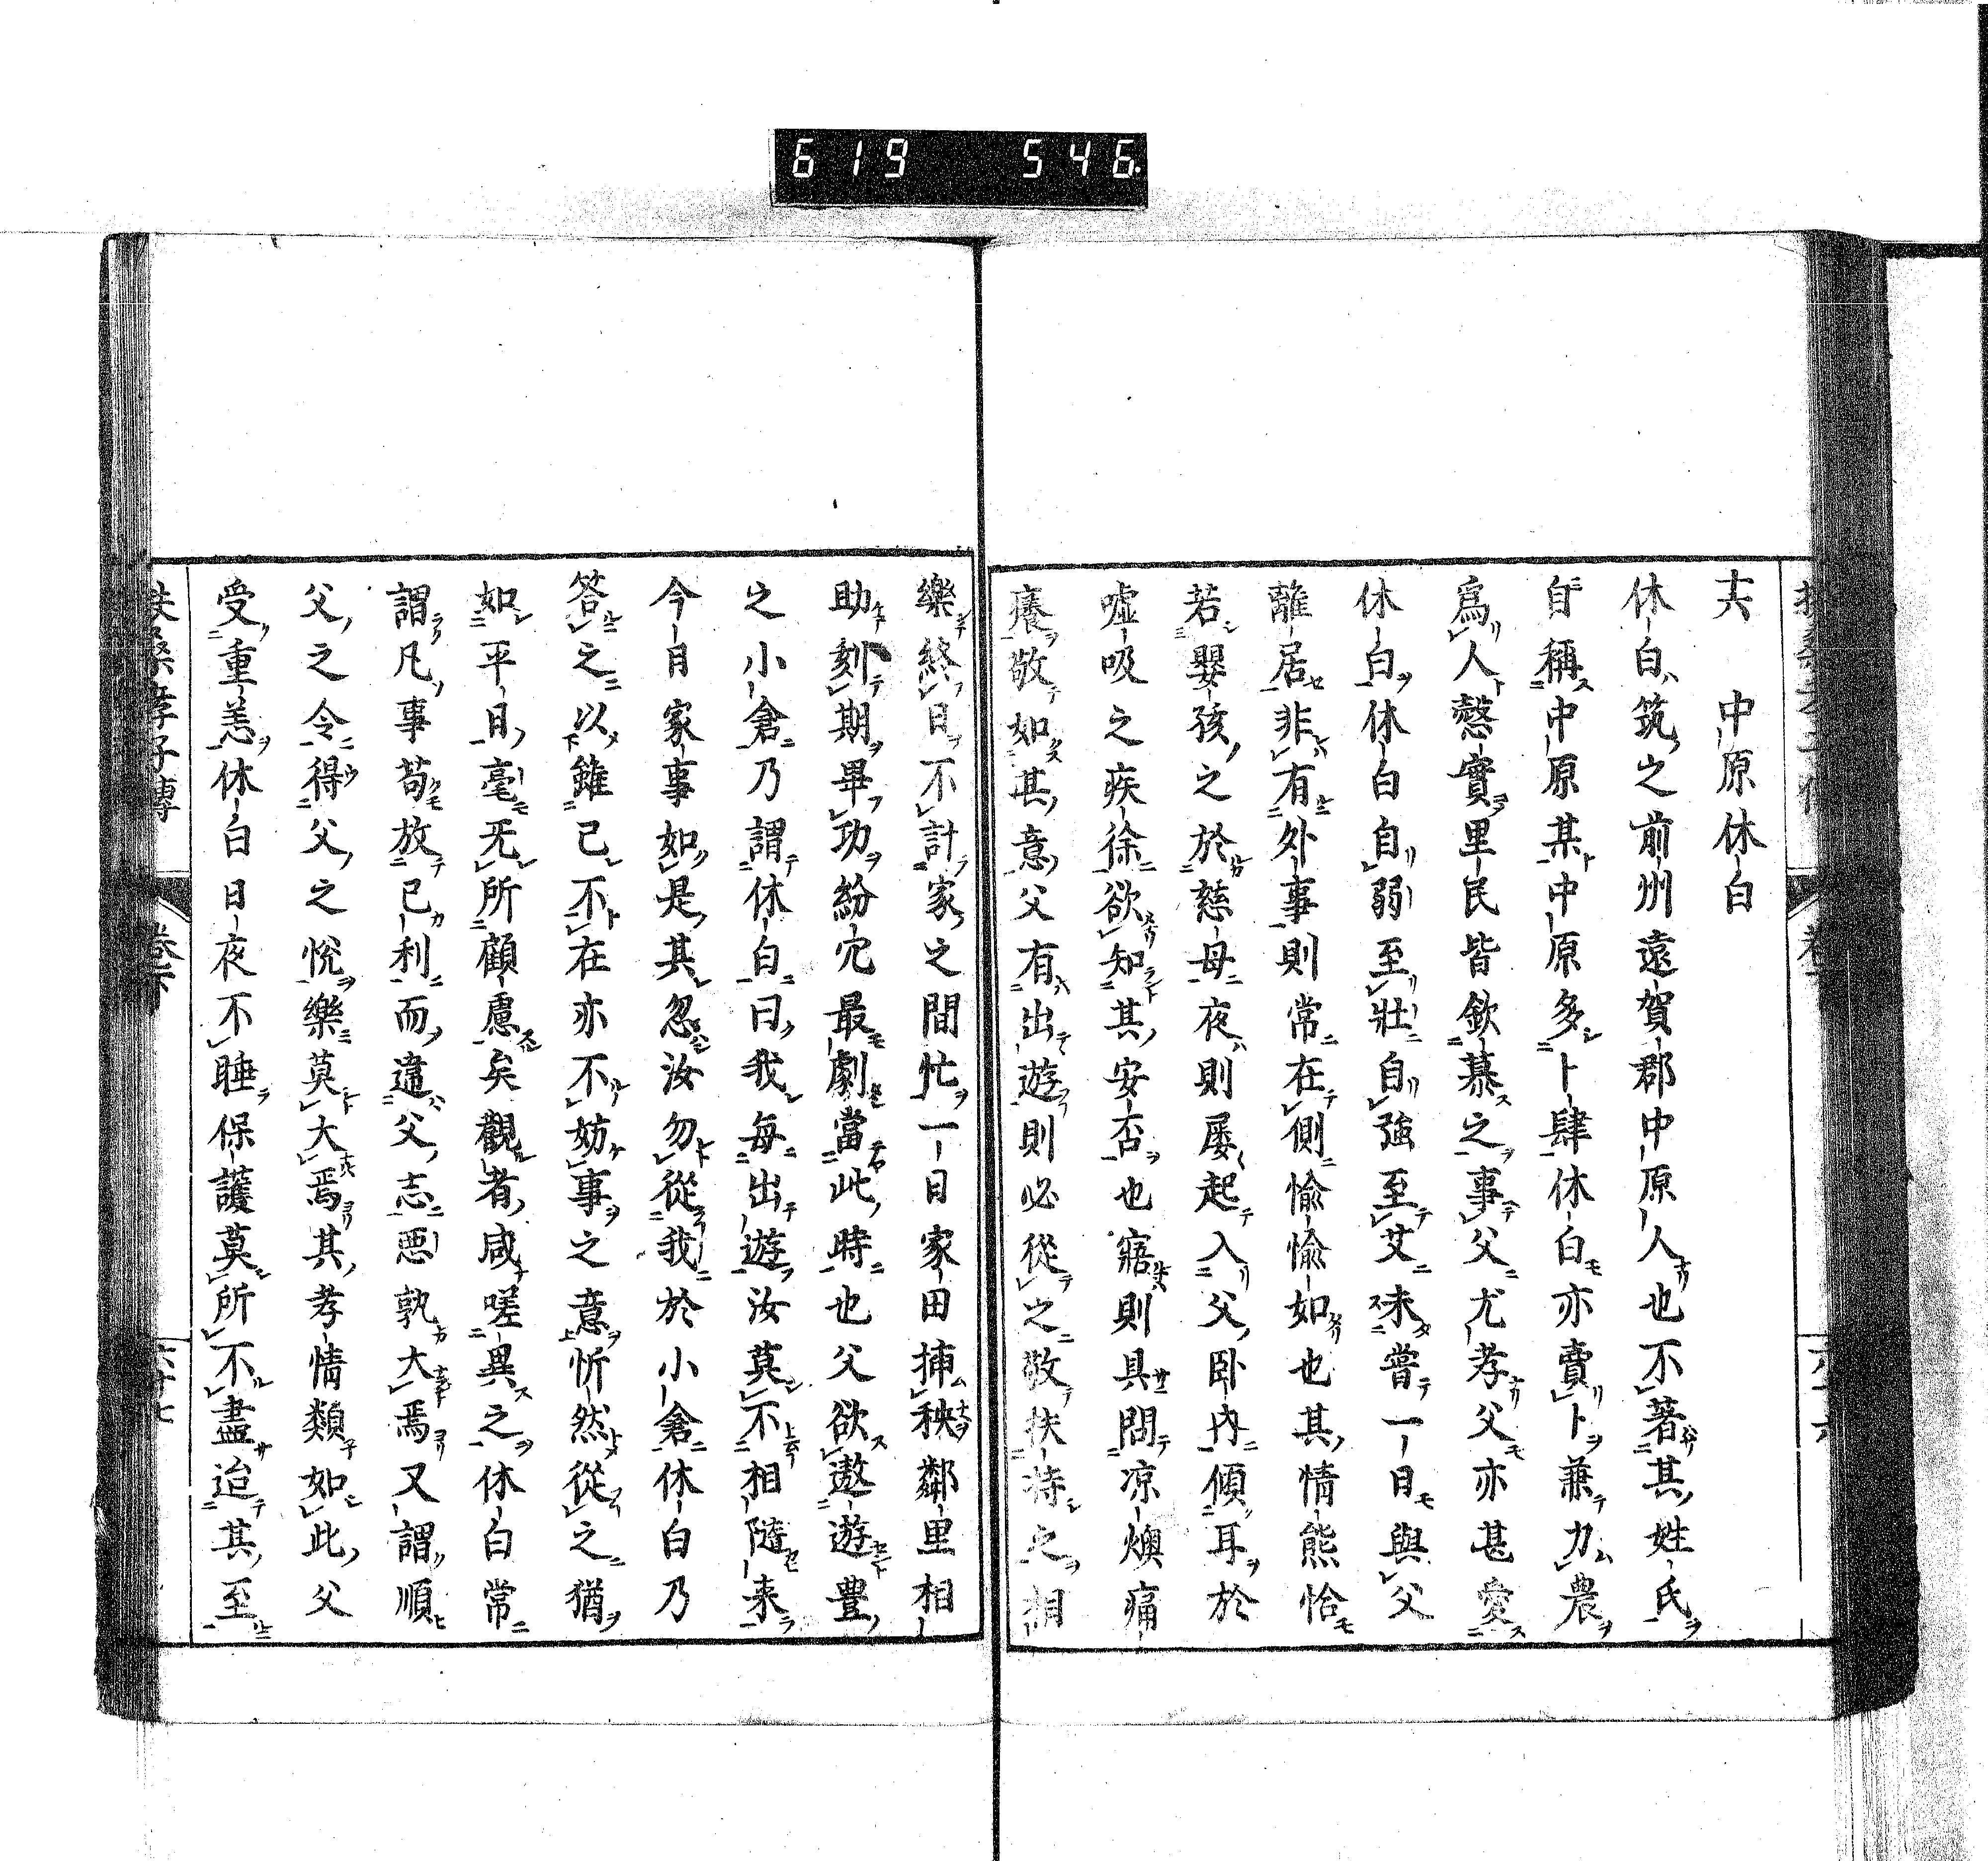 619 546
十六 中原休白
休白筑之前州遠賀郡中原人也不著其姓氏
自稱中原某中原多卜肆休白亦賣卜兼力農
爲人愨實里民皆欽慕之事父尤孝父亦甚愛
休白休白自弱至壯自強至艾未嘗一日與父
離居非有外事則常在側愉愉如也其情熊恰
若嬰孩之於慈母夜則屡起入父臥内傾耳於
嘘吸之疾徐欲知其安否也寤則具問凉燠痛
癢敬如其意父有出遊則必從之敬扶持之相
樂終日不計家之間忙一日家田挿秧鄰里相
助刻期畢功紛冗最劇當此時也父欲遨遊豊
之小倉乃謂休白曰我每出遊汝莫不相隨来
今日家事如是其忽汝勿從我於小倉休白乃
答之以雖己不在亦不妨事之意忻然從之猶
如平日毫无所顧慮矣觀者咸嗟異之休白常
謂凡事苟放己利而違父志悪孰大焉又謂順
父之令得父之悅樂莫大焉其孝情類如此父
受重恙休白日夜不睡保護莫所不盡迨其至
扶桑孝子傳 卷下 六十七